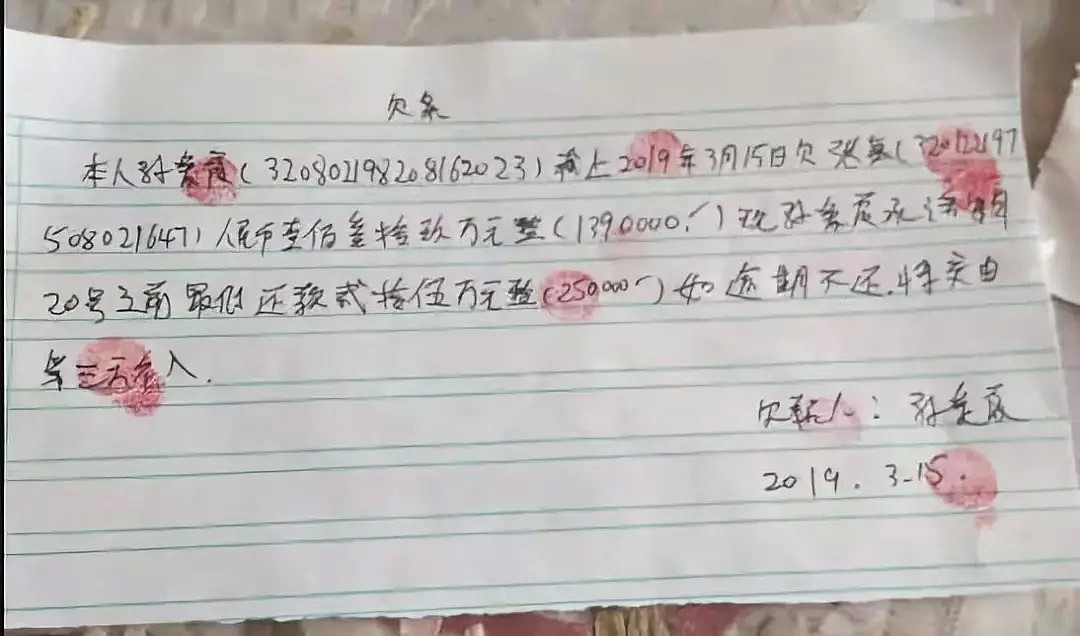 欠条
本人孙爱霞(320802198208162023)截止2019年3月15日欠张氢(32012219７
508021647)人民币壹佰叁拾玖万元整(1390000)现孙爱霞承诺每月
20号之前最低还款贰拾伍万元整(250000)如逾期不还.将交由
第三方介入.
欠款人:孙爱霞
2019.3.15.